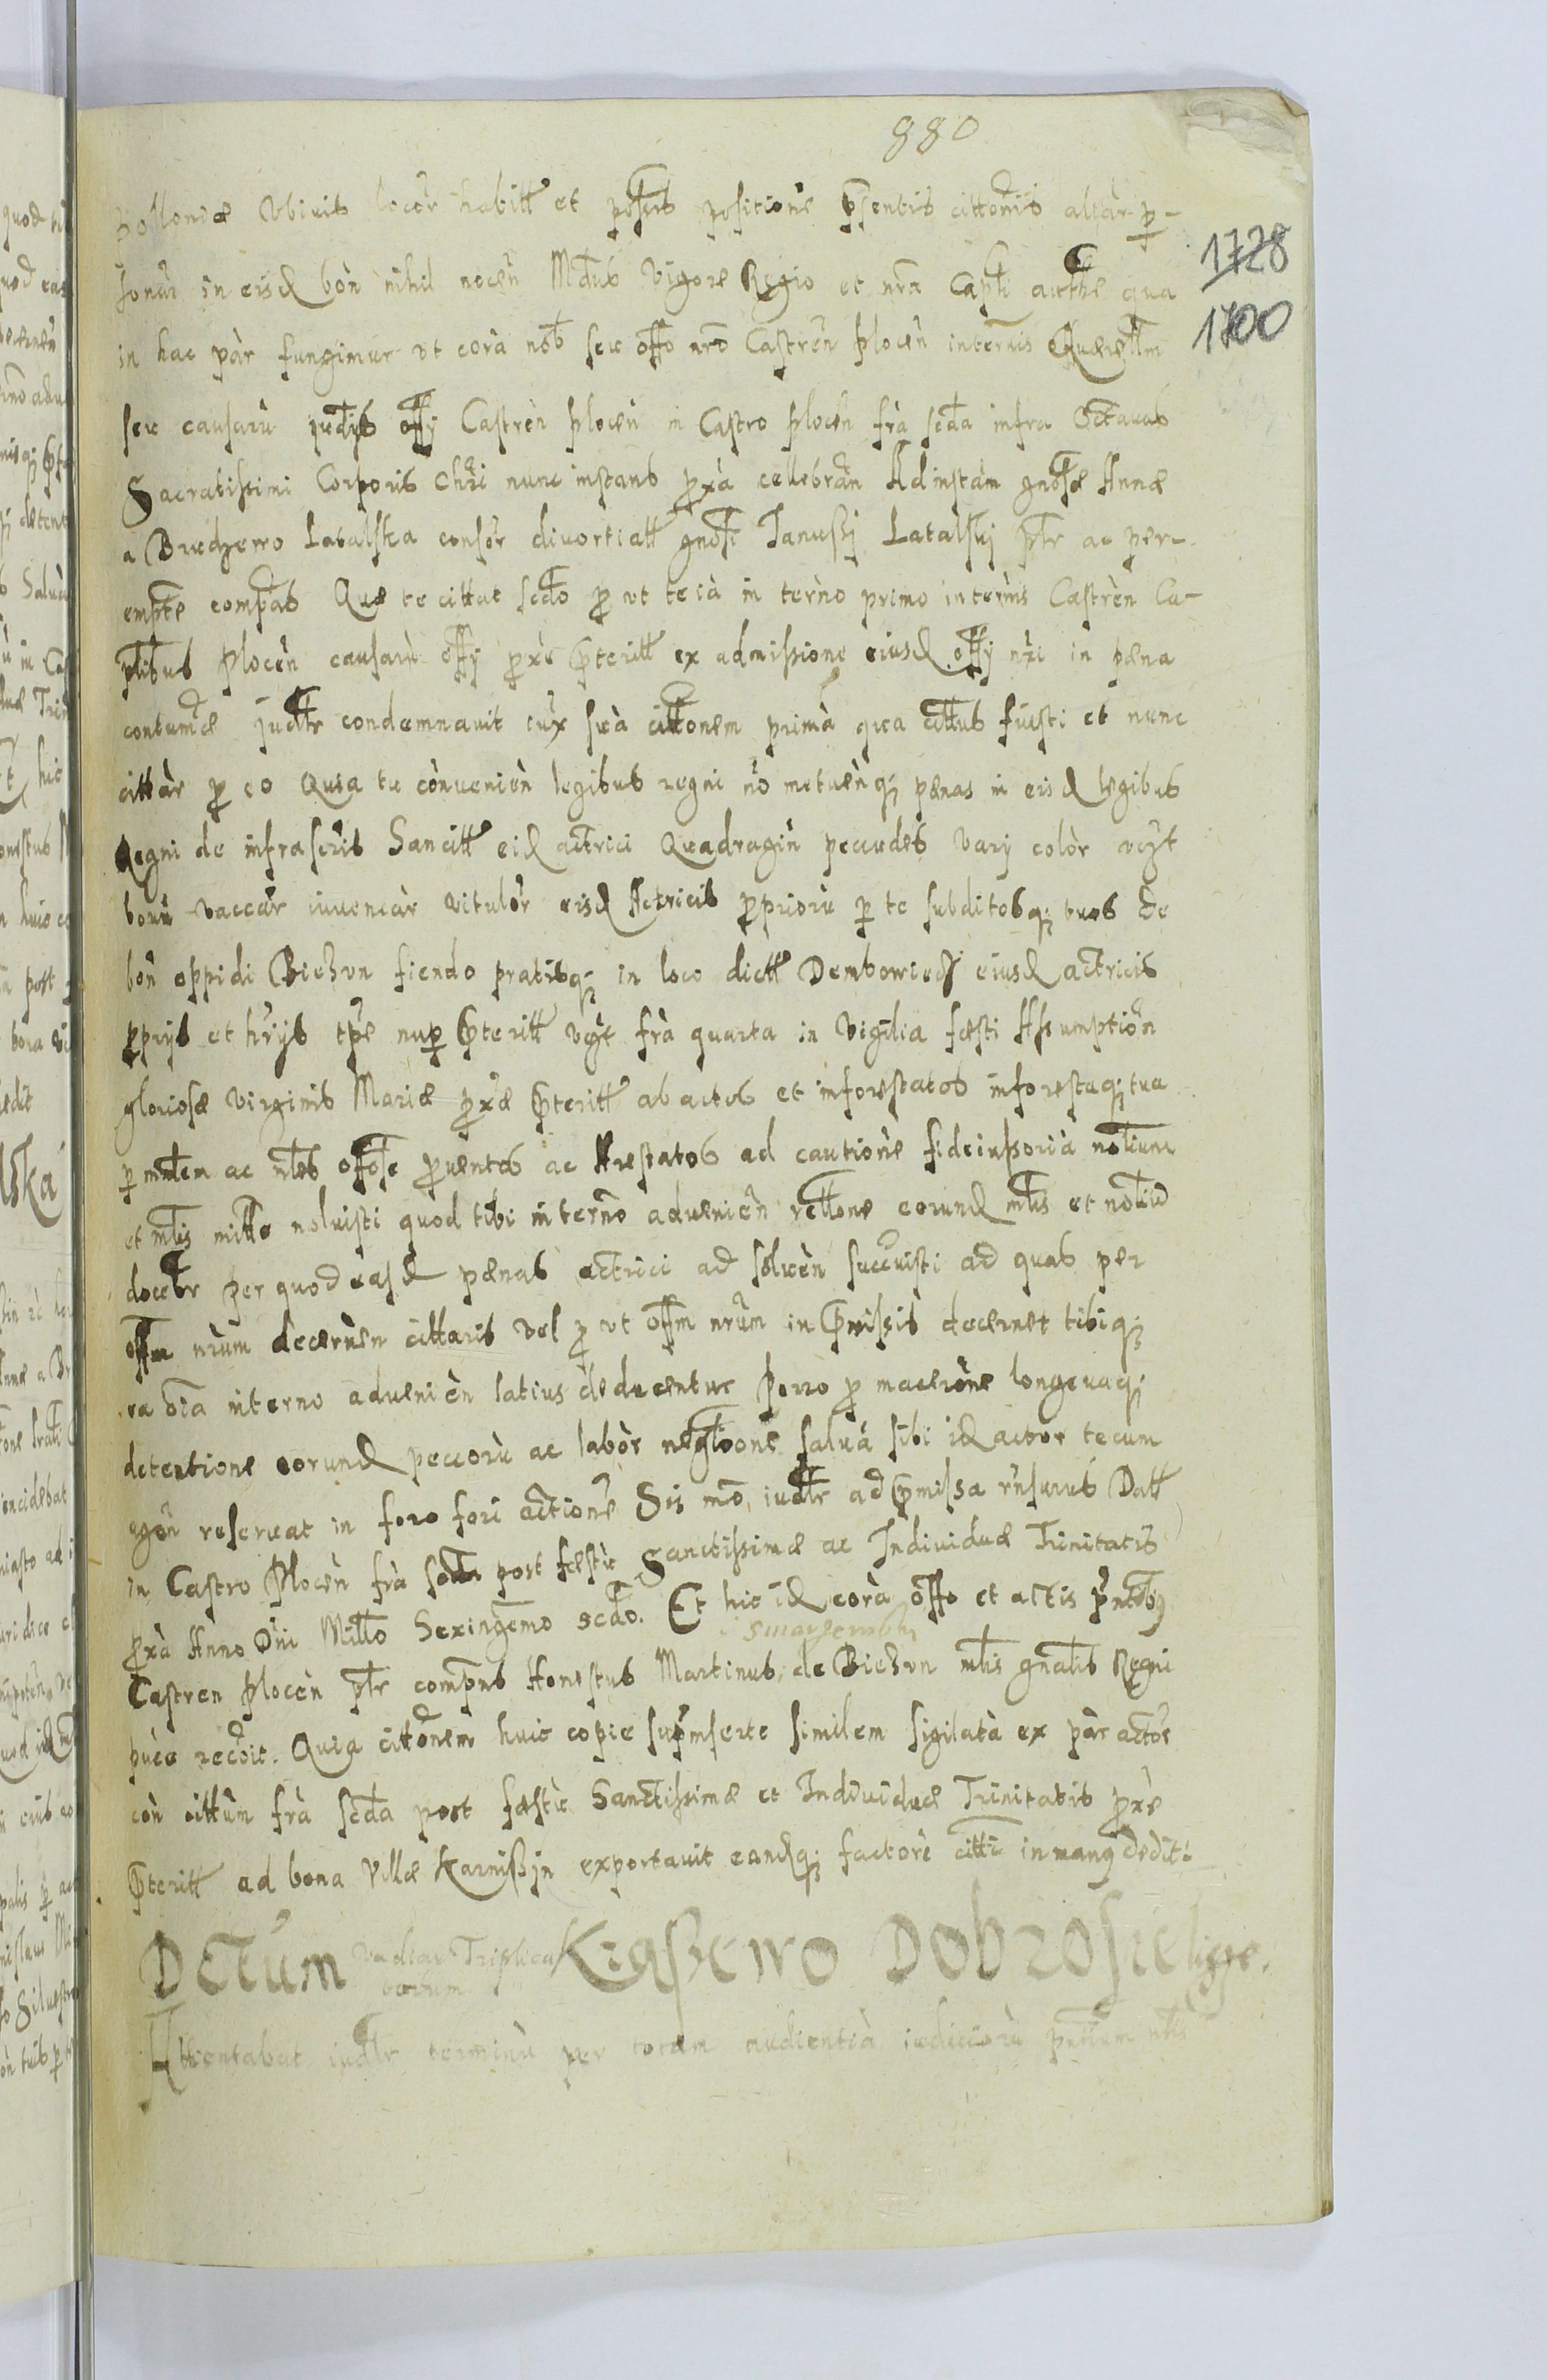 880
1728
1700
Polloniæ Vbiuis locor habitt et possis positione pntis cittonis aliar p-
sonar in eisd bon nihil nocen Mdus Vigore Regio et nra Capti autte qua
in hac par fungimur vt cora nob seu offo nro Castren Plocen interuis Querellm
seu causaru judijs offy Castren Plocen in Castro Plocen fra scda infra Octauas
Sacratissimi Corporis Chri nunc instans proxa cellebran Ad instam gnosæ Annæ
a Brudzewo Latalska consor diuortiatt gnosi Janussij Latalskij ptr ac per-
empte compas Quæ te cittat scdo pro vt te ia in terno primo interuis Castren Ca-
ptibus Plocen causaru offy proxe pterritt ex admissione eiusd offy nri in pæna
contumciæ judtr condemnauit iux sua cittonem prima qua cittus fuisti et nunc
cittar pro eo Quia tu conuenien legibus regni no metuenq pænas in eisd legibus
Regni de infrascris Sancitt eid actrici Quadragin peccudes vary color vczt
bouu vaccar iuuencar vitulor eisd Actricis proprioru p te subditosq tuos de
bon oppidi Biezvn fiendo pratisq in loco dictt Dembowiecz eiusd actricis
pprijs et hrijs tpe nup pterritt vczt fra quarta in Vigilia fæsti Assumption
gloriosæ Virginis Mariæ proxæ pterritt abactos et inforestatos inforestaq tua
p mtem ac nles offose prouentos ac Arestatos ad cautione fideiussoria noluue
et mtis mitte noluisti quod tibi in terno aduenien rettone eorund mtis et noliu
docebtr per quod easd pænas actrici ad soluen succuisti ad quas per
offm nrum decernen cittaris vel pro vt offm nrum in pmissis decernet tibiq
ea oia in terno aduenien latius deducentur Porro pro macerone longeuaq
detentione eorund peccoru ac labor neglcone salua sibi id actor tecum
agen reseruat in foro fori actione Sis mo, iudtr ad pmissa rnsurus Datt
in Castro Plocen fra scda post fæstu Sanctissimæ ac Indiuiduæ Trinitatis
proxa Anno Dni Mitto Sexingemo scdo. Et hic id cora offo et actis pntibg
Castren Plocen ptr compns Honestus Martinus de Biezvn mtis gnalis Regni
puce recoit. Quia cittonem huic copie supinserte similem sigilata ex par actore
con cittum fra scda post fæstu Sanctissimæ et Indiuiduæ Trinitatis proxe
pterritt ad bona Villæ Karnissyn exportauit eandq factore citti in mang dedit
Dctum vadiar Triplica Krassewo Dobrosielicze.
Attentabat iudtr terminu per totam audientia iudicioru